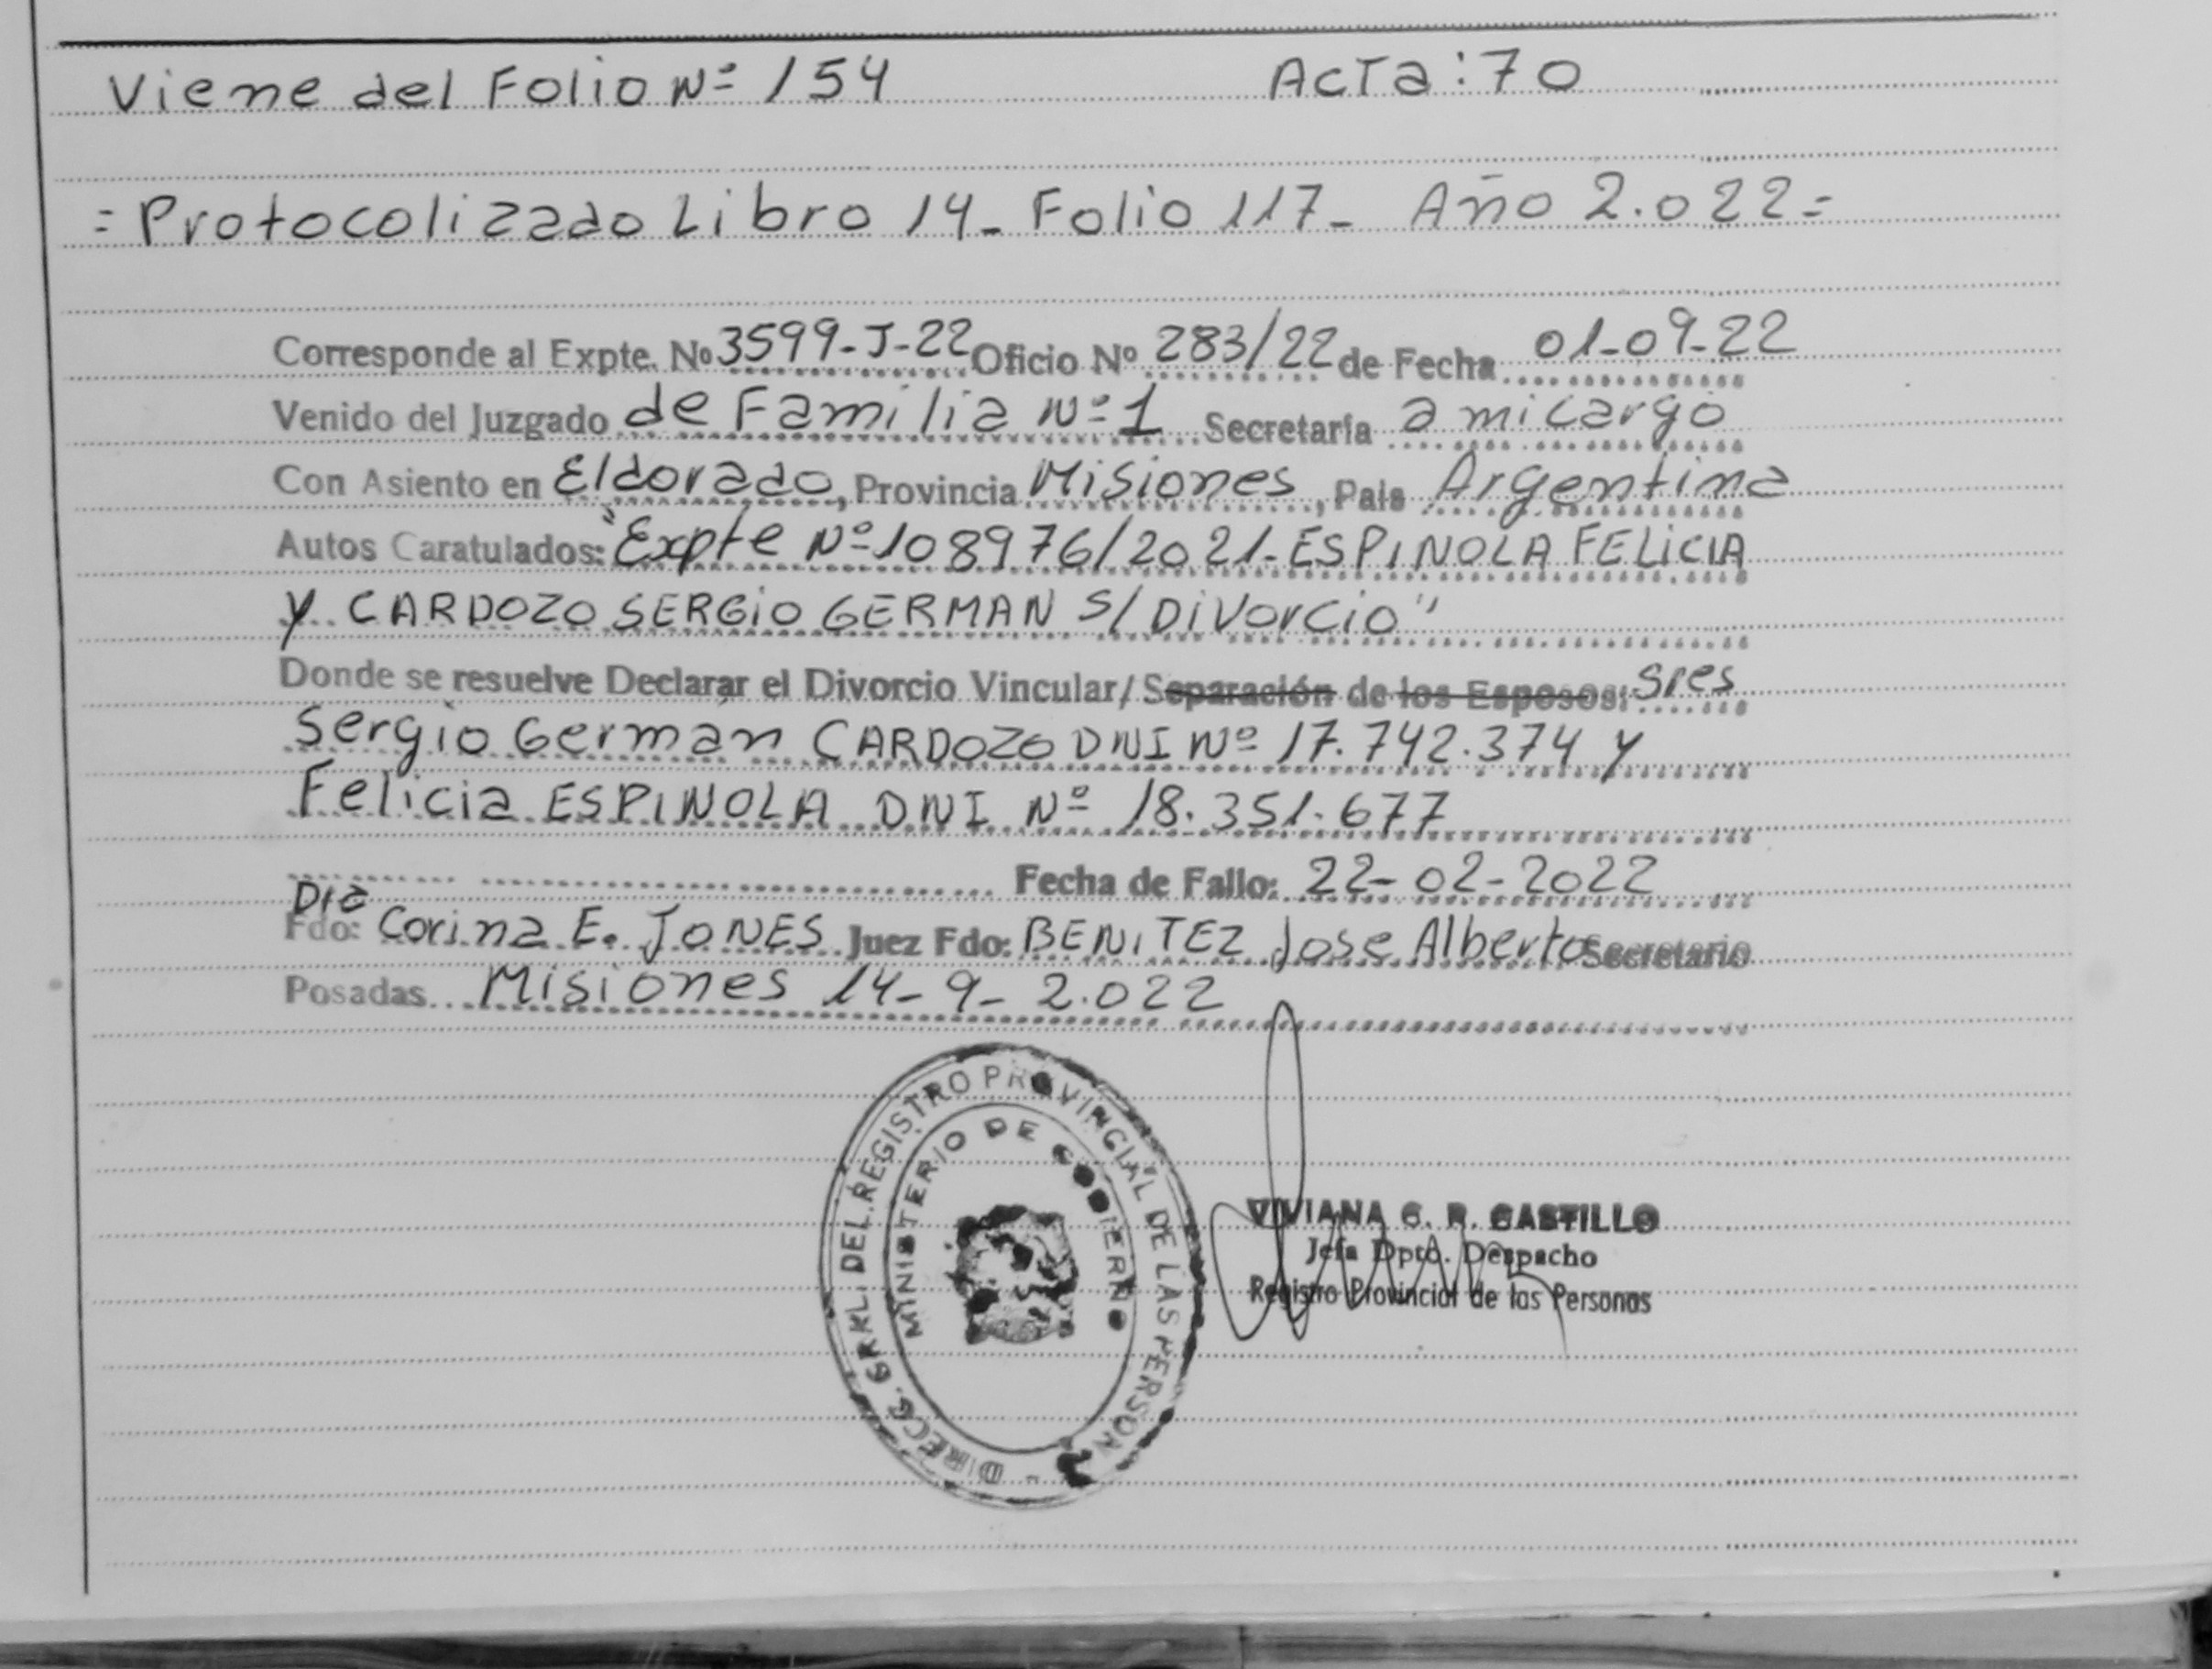 Viene del Folio Nº 154 Acta: 70
= Protocolizado Libro 14_ Folio 117_ Año 2.022=
Corresponde al Expte. Nº 3599-J-22 Oficio Nº 283/22 de Fecha 01-09-22
Venido del Juzgado de Familia Nº 1 Secretaría a mi cargo
Con Asiento en Eldorado, Provincia Misiones, País Argentina
Autos Caratulados: "Expte Nº 108976/2021-ESPINOLA FELICIA
y CARDOZO SERGIO GERMAN S/Divorcio"
Donde se resuelve Declarar el Divorcio Vincular/ Separación de los Esposos: Sres
Sergio German CARDOZO DNI Nº 17.742.374 y
Felicia ESPINOLA DNI Nº 18.351.677
Fecha de Fallo: 22-02-2022
Dra
Fdo: Corina E. JONES Juez Fdo: BENITEZ Jose Alberto Secretario
Posadas Misiones 14-9-2.022
DIRECC. GRAL. DEL REGISTRO PROVINCIAL DE LAS PERSONAS
MINISTERIO DE GOBIERNO
VIVIANA G. R. CASTILLO
Jefa Dpto. Despacho
Registro Provincial de las Personas